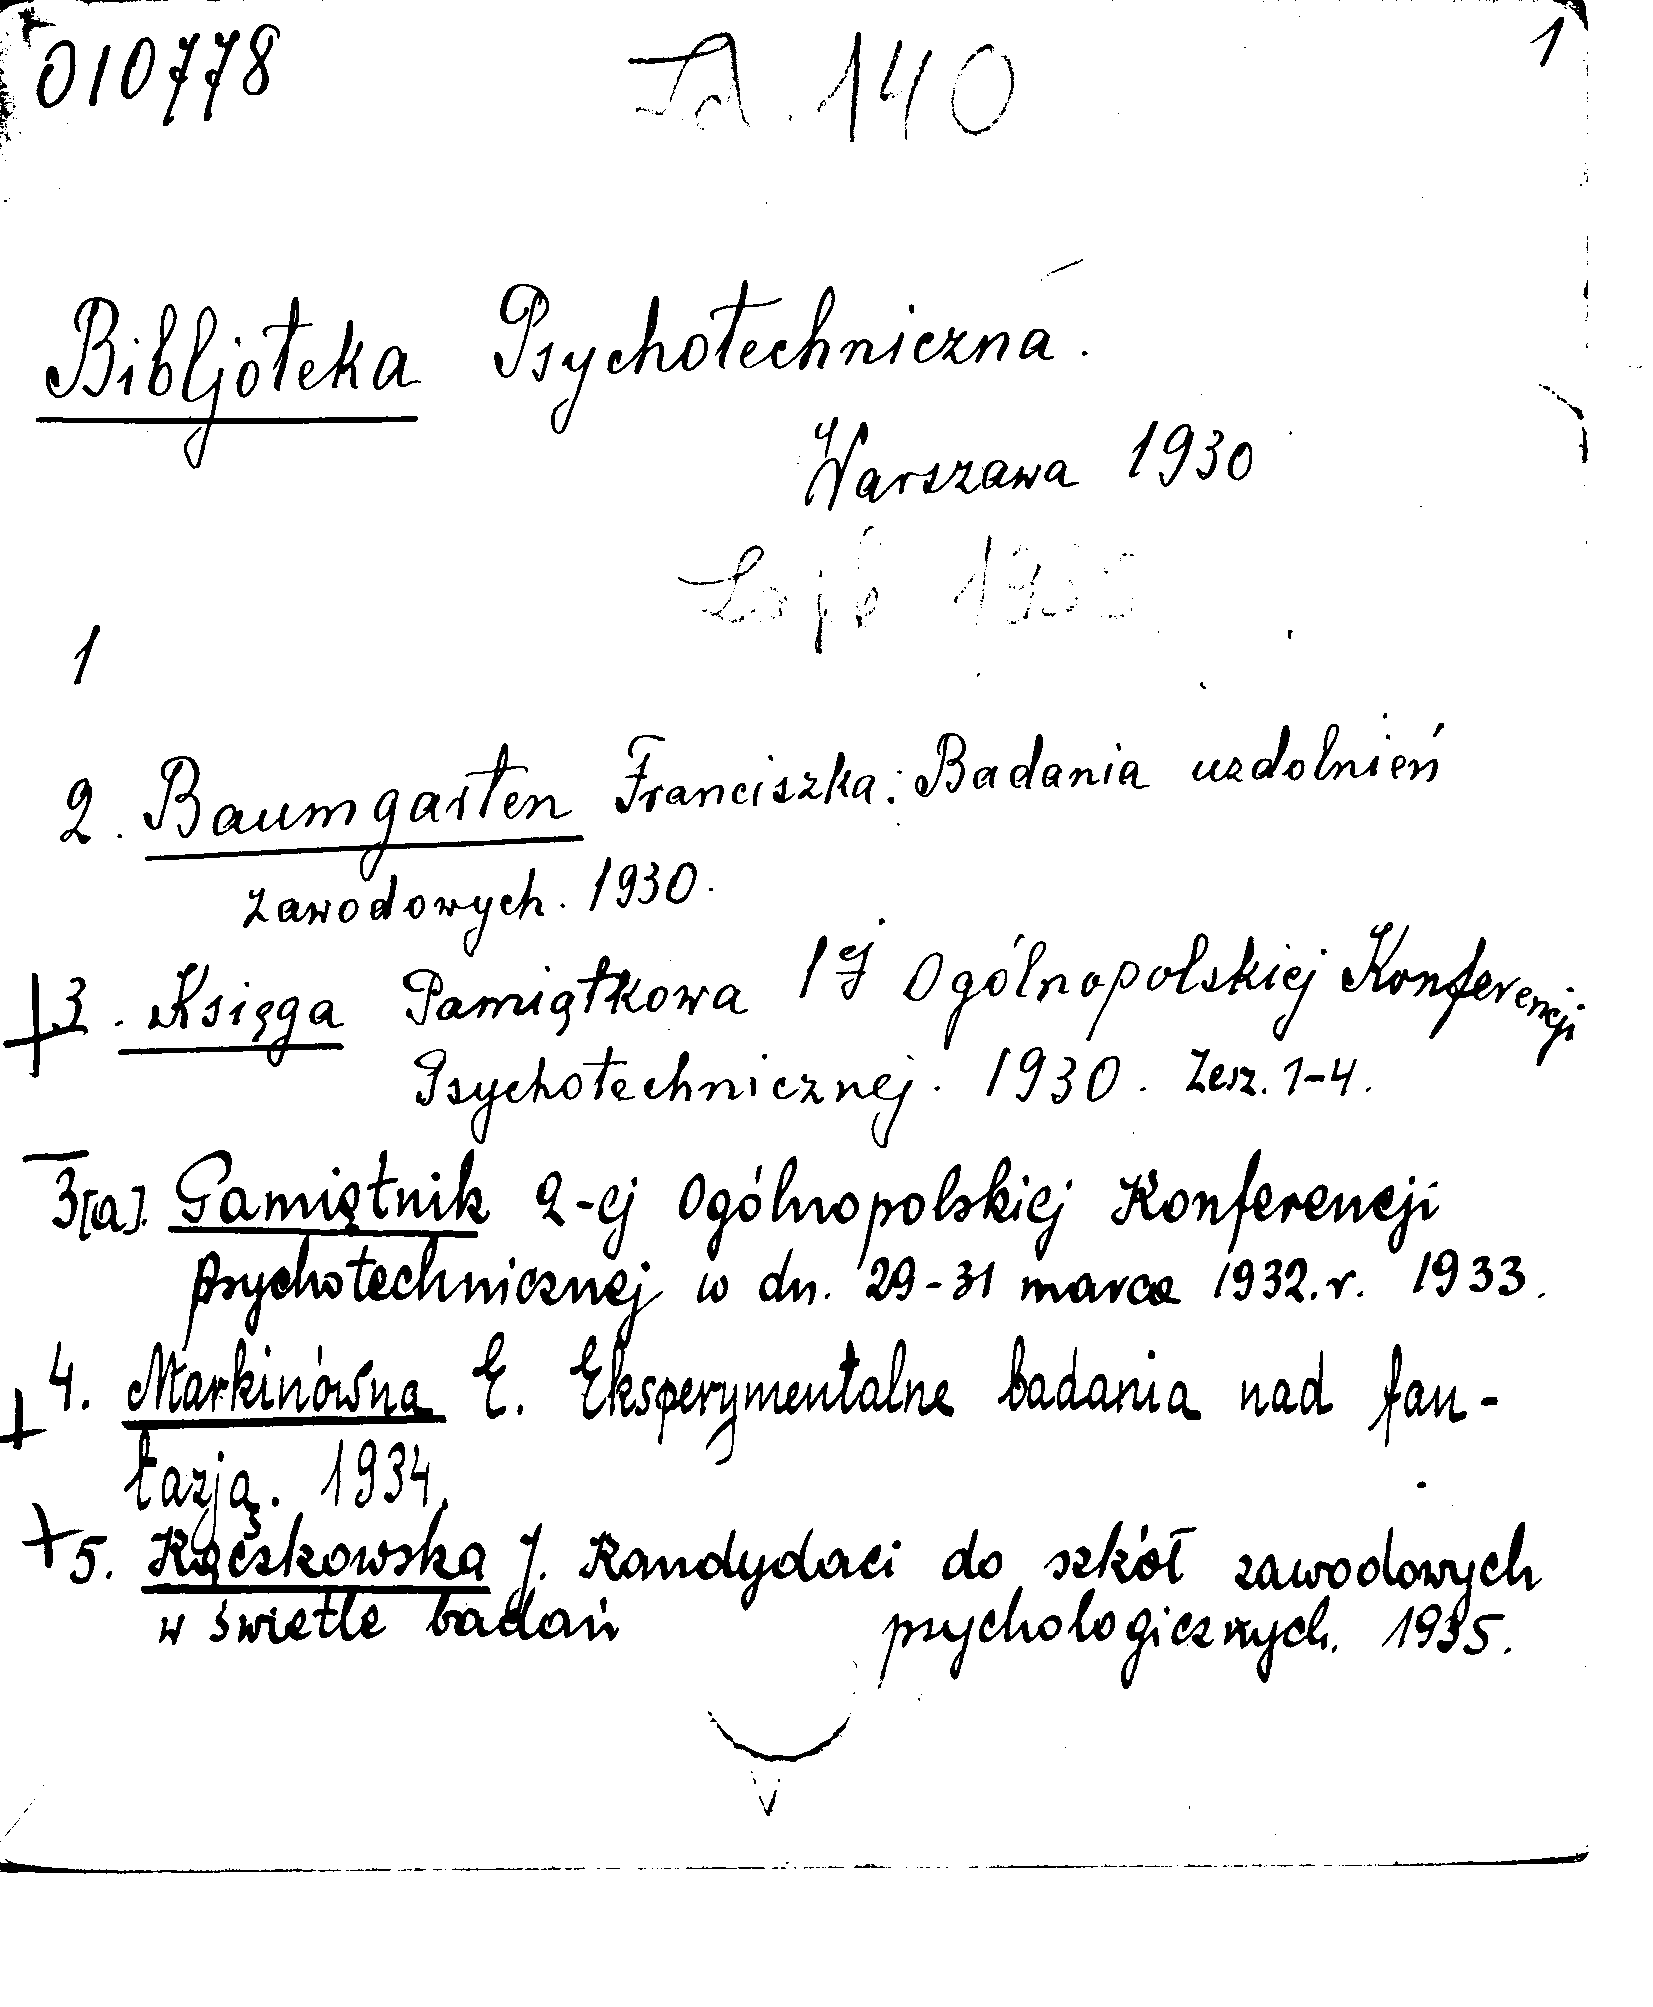 010778 140 1
Bibljoteka Psychotechniczna.
Warszawa 1930
1
2. Baumgarten Franciszka: Badania uzdolnień
zawodowych. 1930.
3. Księga Pamiątkowa I Ogólnopolskiej Konferencji
Psychotechnicznej. 1930. Zesz. 1-4.
3[a]. Pamiętnik 2-ej Ogólnopolskiej Konferencji
psychotechnicznej w dn. 29-31 marca 1932.r. 1933.
4. Markinówna E. Eksperymentalne badania nad fan-
tazją. 1934.
5. Kączkowska J. Kandydaci do szkół zawodowych
w świetle badań psychologicznych. 1935.